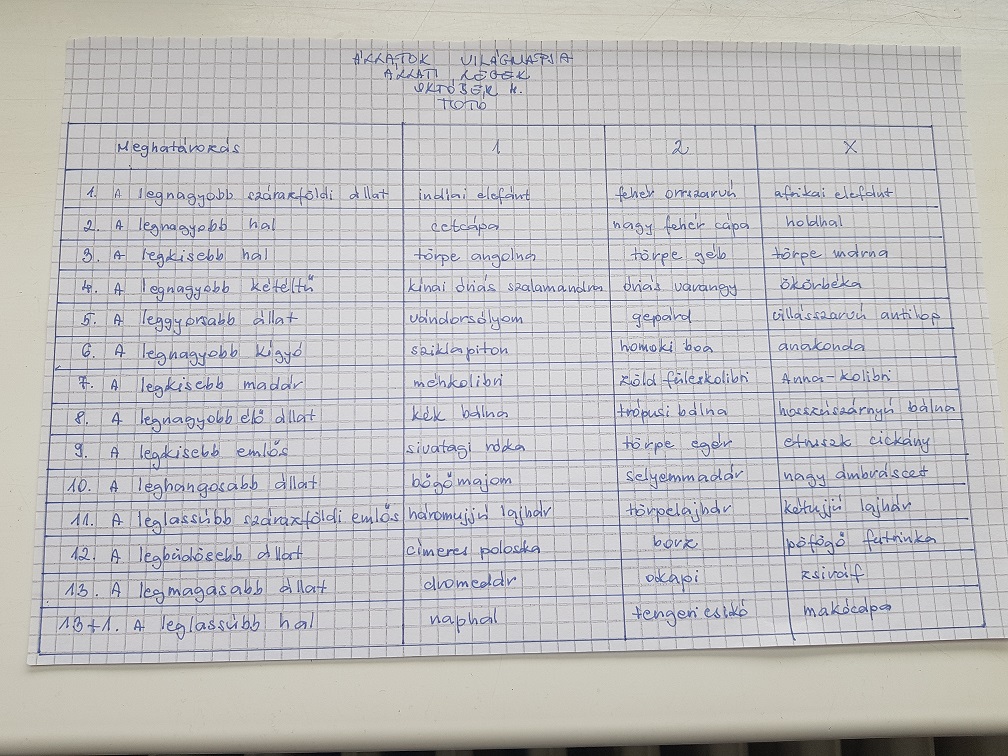 ÁLLATOK VILÁGNAPJA
ÁLLATI LEGEK
OKTÓBER 4.
TOTÓ
Meghatározás 1 2 X
1. A legnagyobb szárazföldi állat indiai elefánt fehér orrszarvú afrikai elefánt
2. A legnagyobb hal cetcápa nagy fehér cápa holdhal
3. A legkisebb hal törpe angolna törpe géb törpe márna
4. A legnagyobb kétéltű kínai óriás szalamandra óriás varangy ökörbéka
5. A leggyorsabb állat vándorsólyom gepárd villásszarvú antilop
6. A legnagyobb kígyó sziklapiton homoki boa anakonda
7. A legkisebb madár méhkolibri zöld füleskolibri Anna-kolibri
8. A legnagyobb élő állat kék bálna trópusi bálna hosszúszárnyú bálna
9. A legkisebb emlős sivatagi róka törpe egér etruszk cickány
10. A leghangosabb állat bőgőmajom selyemmadár nagy ámbráscet
11. A leglassúbb szárazföldi emlős háromujjú lajhár törpelajhár kétujjú lajhár
12. A legbüdösebb állat címeres poloska borz pöfögő futrinka
13. A legmagasabb állat dromedár okapi zsiráf
13+1. A leglassúbb hal naphal tengeri csikó makócápa